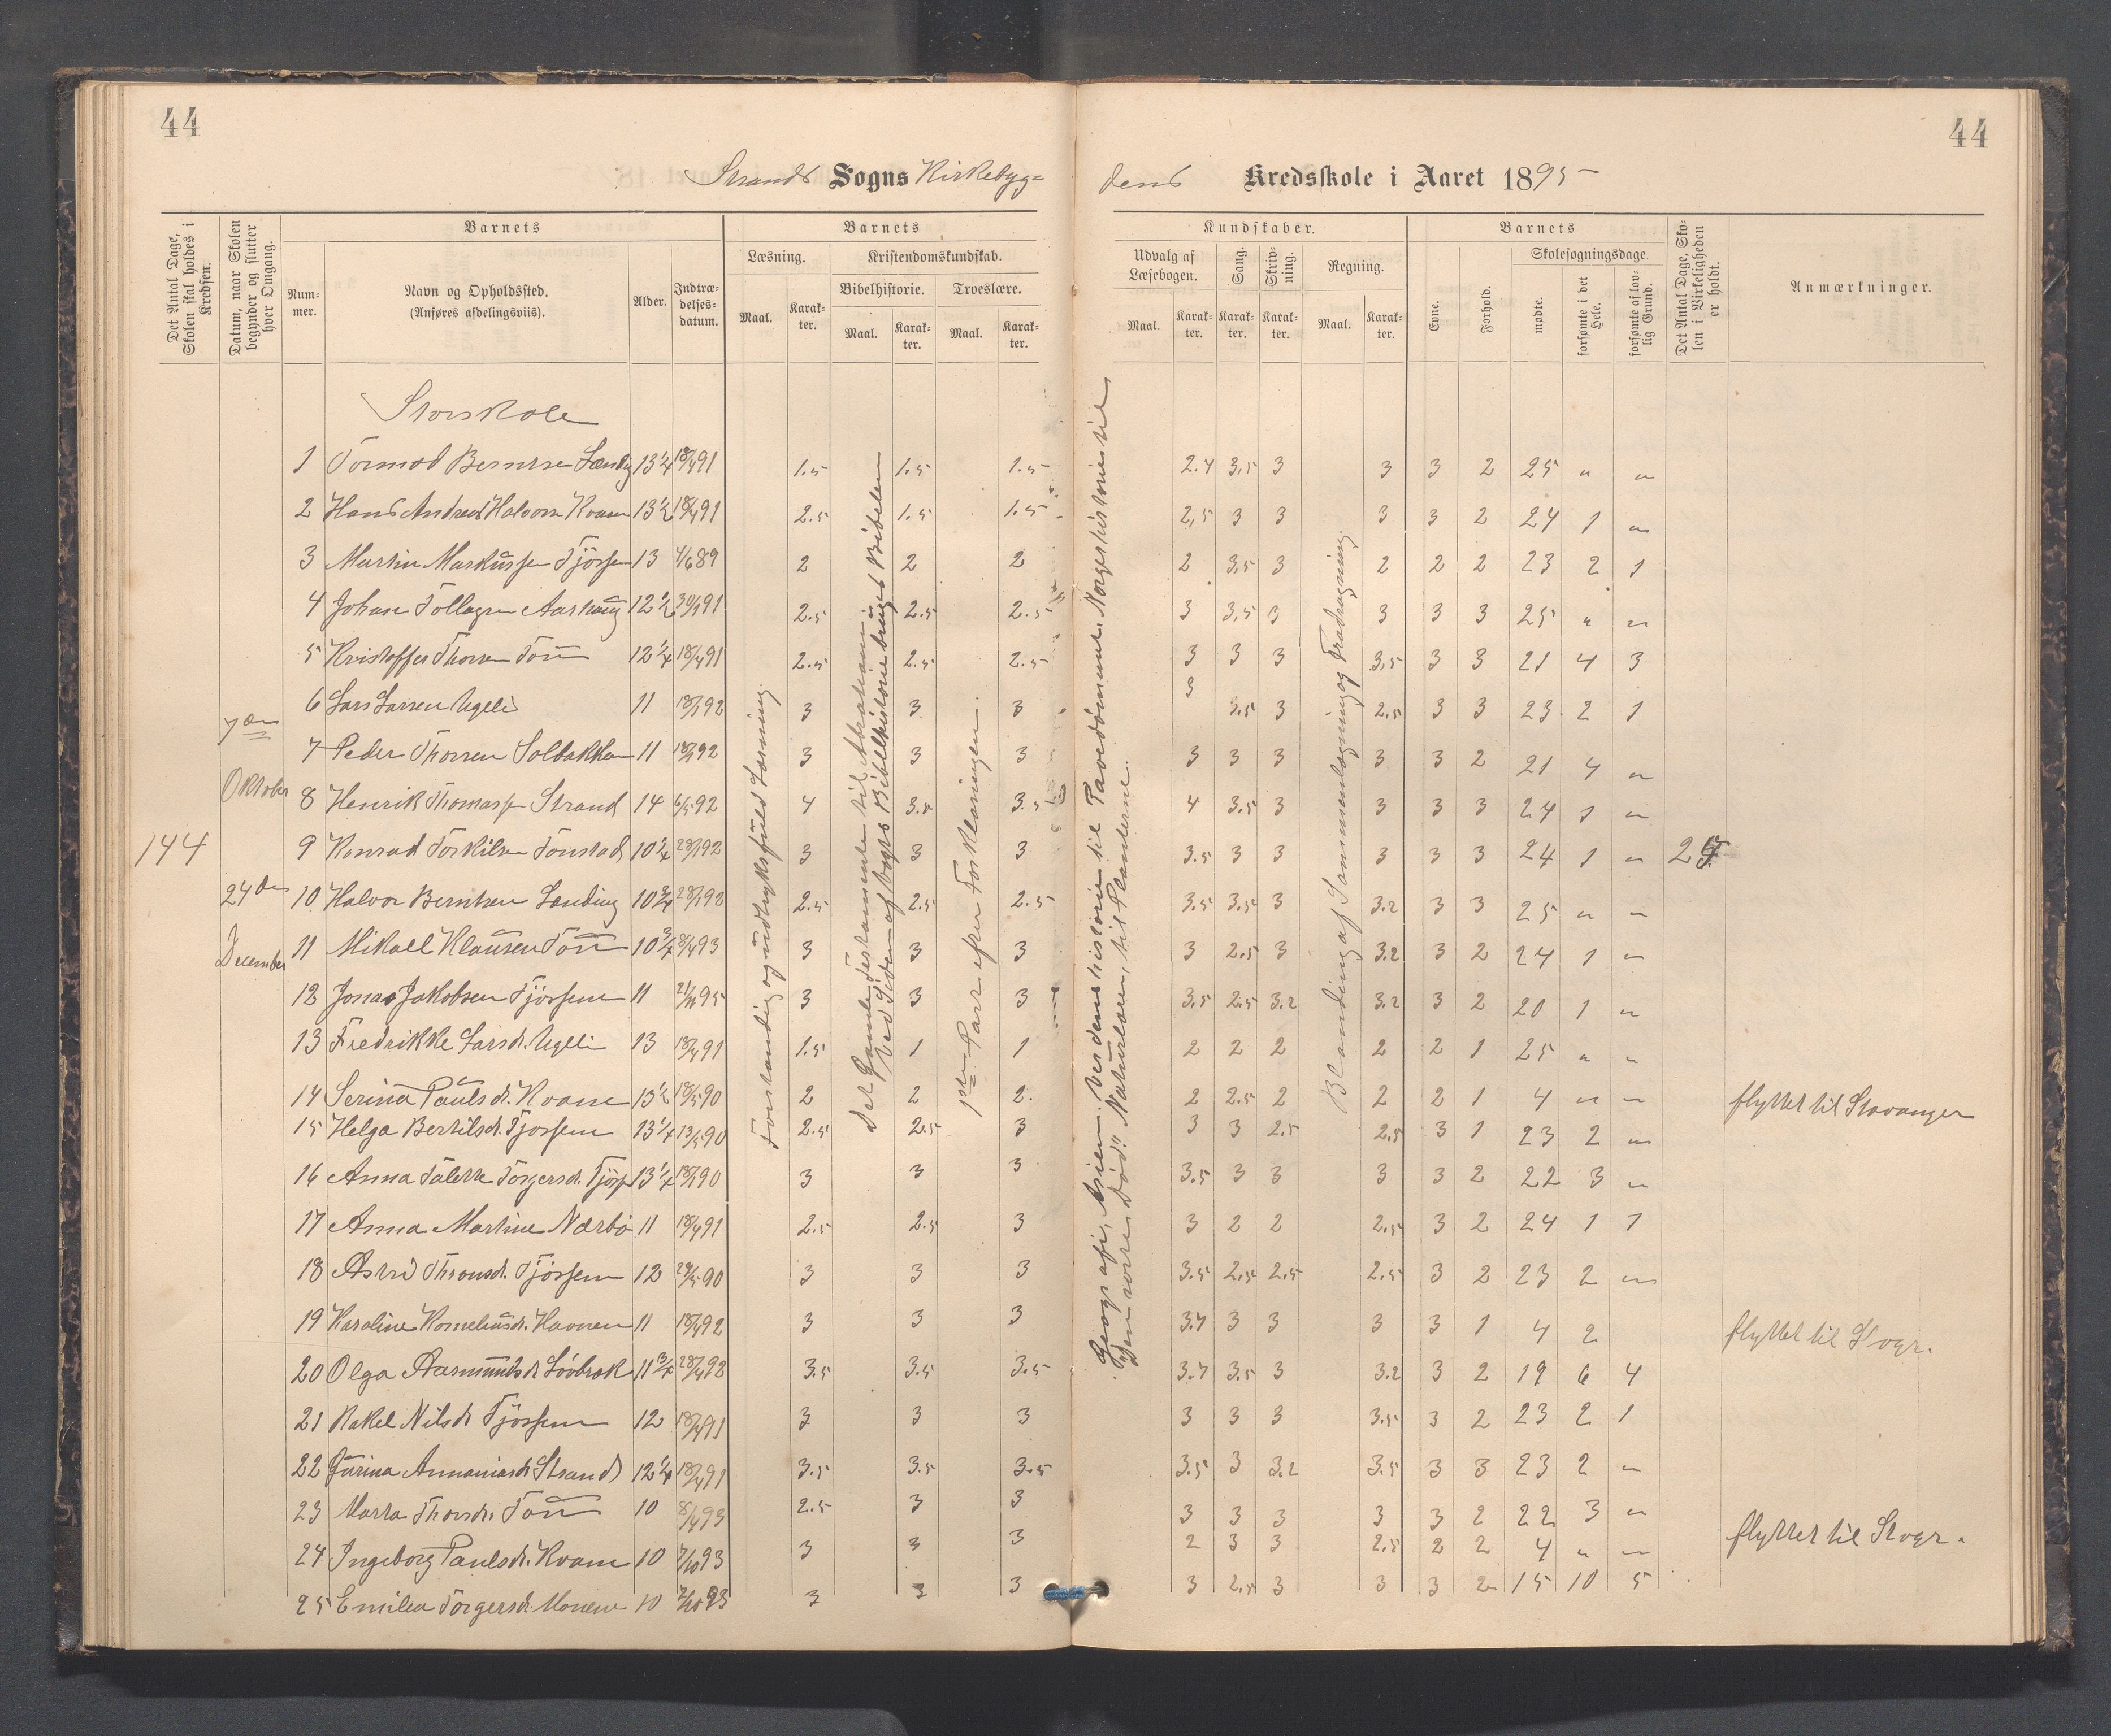 44
44
Strands Sogns Kirkebyg=
dens Kredsskole i Aaret 1895
Det Antal Dage, Skolen skal holdes i Kredsen.
Datum, naar Skolen begynder og slutter hver Omgang.
Barnets
Num-mer.
Navn og Opholdssted.
(Anføres afdelingsviis).
Alder.
Indtræ-delses-datum.
Barnets
Læsning.
Maal.
Karak-ter.
Kristendomskundskab.
Bibelhistorie.
Maal.
Karak-ter.
Troeslære.
Maal.
Karak-ter.
Kundskaber.
Udvalg af Læsebogen.
Maal.
Karak-ter.
Sang.
Karak-ter.
Skriv-ning.
Karak-ter.
Regning.
Maal.
Karak-ter.
Barnets
Evne.
Forhold.
Skolesøgningsdage.
mødte.
forsømte i det Hele.
forsømte af lov-lig Grund.
Det Antal Dage, Sko-len i Virkeligheden er holdt.
Anmærkninger.
Storskole
144
7de
Oktober
24de
December
Forstandig og udtryksfuld Læsning.
Det gamle Testamente til Abraham
ved Siden af Vogts Bibelhistorie bruges Bibelen
1ste Part efter Forklaringen.
Geografi, Asien. Verdenshistorie til Pavedømmet. Norgeshistorie til
"Den sorte Død". Naturlæren, til Planterne.
Blanding af Sammenlægning og Fradragning
1 Tormod Berntsen Lænding 13 1/4 18/4 91 1.5 1.5 1.5 2.4 3,5 3 3 3 2 25 " "
2 Hans Andreas Halvorsen Kvam 13 1/2 18/4 91 2.5 1.5 1.5 2,5 3 3 3 3 2 24 1 "
3 Martin Markussen Tjössem 13 4/6 89 2 2 2 2 3,5 3 2 2 2 23 2 1
4 Johan Tollagsen Aarhaug 12 1/2 30/1 91 2.5 2.5 2.5 3 3,5 3 3 3 3 25 " "
5 Kristoffer Thorsen Tou 12 1/4 18/4 91 2.5 2.5 2.5 3 3 3 3,5 3 3 21 4 3
6 Lars Larsen Ugeli 11 18/1 92 3 3 3 3 3.5 3 2.5 3 3 23 2 1
7 Peder Thorsen Solbakken 11 18/1 92 3 3 3 3 3 3 3 3 2 21 4 "
8 Henrik Thomassen Strand 14 6/5 92 4 3.5 3.5 4 3.5 3 3 3 3 24 1 "
9 Konrad Torkilsen Tonstad 10 1/4 28/1 92 3 3 3 3.5 3 3 3 3 3 24 1 " 25
10 Halvor Berntsen Lænding 10 3/4 28/1 92 2.5 2.5 2.5 3.5 3.5 3 3.2 3 3 25 " "
11 Mikael Klausen Tou 10 3/4 8/4 93 3 3 3 3 2.5 3 3.2 3 2 24 1 "
12 Jonas Jakobsen Tjössem 11 21/10 95 3 3 3 3.5 2.5 3.2 3.2 3 2 20 1 "
13 Fredrikke Larsd. Ugeli 13 18/4 91 1.5 1 1 2 2 2 2 2 1 25 " "
14 Serina Paulsd. Kvam 13 1/2 18/5 90 2 2 2. 2 2.5 2 2 2 1 4 " " flyttet til Stavanger
15 Helga Bertilsd. Tjossem 13 1/4 13/5 90 2.5 2.5 3 3 3 2.5 2.5 3 1 23 2 "
16 Anna Talette Torgersd. Tjöss 13 1/4 18/1 90 3 3 3 3.5 3 3 3 3 2 22 3 "
17 Anna Martine Nærbö 11 18/4 91 2.5 2.5 3 3 2 2 2.5 3 2 24 1 1
18 Astri Thronsd. Tjössem 12 28/5 90 3 3 3 3.5 2.5 2.5 2.5 3 2 23 2 "
19 Karoline Korneliusd. Havnen 11 18/4 92 3 3 3 3.7 3 3 3 3 1 4 2 flyttet til Stvgr.
20 Olga Aasmundsd. Lövbrok 11 3/4 28/4 92 3.5 3.5 3.5 3.7 3.5 3 3.2 3 2 19 6 4
21 Rakel Nilsd. Tjössem 12 18/4 91 3 3 3 3 3 3 3.5 3 2 23 2 1
22 Jurina Annaniasd. Strand 12 1/4 18/4 91 3.5 3.5 3.5 3.5 3 3.2 3.5 3 3 23 2 "
23 Marta Thorsd. Tou 10 8/4 93 2.5 3 3 3 3 3 3 3 2 22 3 "
24 Ingeborg Paulsd. Kvam 10 7/10 93 3 3 3 2 3 3 2.5 2 2 4 " " flyttet til Stvgr.
25 Emilea Torgersd. Monene 10 7/10 93 3 3 3 3 2.5 3 3 3 2 15 10 5